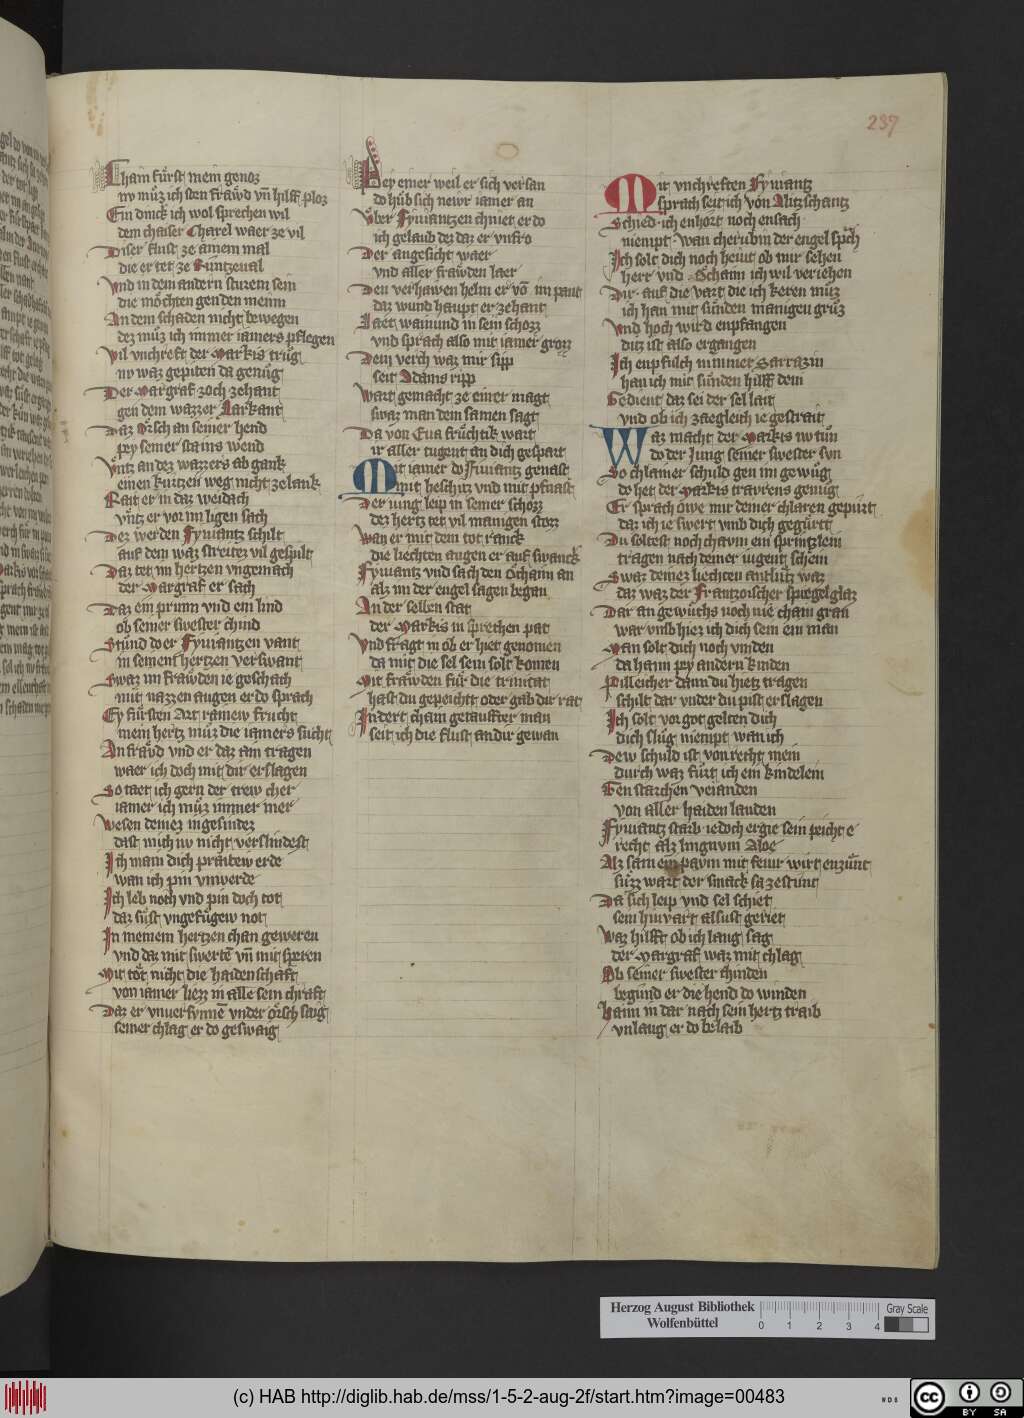 237
Cham fürst mein genoz
nv müz ich sten frawd vn hilff ploz
Ein dinck ich wol sprechen wil
dem chaiser Charel waer ze vil
Diser flust ze ainem mal
die er tet ze Runtzeual
Vnd in dem andern sturem sein
die möchten genden meinn
An dem schaden nicht bewegen
dez müz ich immer iamers pflegen
Wil vnchreft der Markis trüg
nv waz gepiten da genüg
Der Margraf zoch zehant
gen dem wazzer Larkant
Daz örsch an seiner hend
pey seiner stains wend
Vntz an dez wazzers ab gank
einen kurtzen weg nicht ze lank
Rait er in daz weidach
vntz er vor im ligen sach
Dez werden Fyuiantz schilt
auf dem waz streitez vil gespilt
Daz tet im hertzen vngemach
der Margraf er sach
Daz ein prunn vnd ein lind
ob seiner swester chind
Stünd do er Fyuiantzen vant
in seinem hertzen verswant
Swaz im frawden ie geschach
mit nazzen augen er do sprach
Ey fürsten Art rainew frucht
mein hertz müz die iamers sucht
An frawd vnd er daz am tragen
waer ich doch mit dir erslagen
So taet ich gern der trew cher
iamer ich müz immer mer
Wesen deinez ingesindez
dast mich nv nicht verslindest
Ich main dich praitew erde
wan ich pin vnwerde
Ich leb noch vnd pin doch tot
daz sust vngefügew not
In meinem hertzen chan geweren
vnd daz mit swerten vn mit speren
Mit töt nicht die haidenschaft
von iamer liezz in alle sein chraft
Daz er vnuersunnen vnder örsch swig
seiner chlag er do geswaig
Pey einer weil er sich versan
do hüb sich newr iamer an
Vber Fyuiantzen chniet er do
ich gelaub dez daz er vnfro
Der angesicht waer
vnd aller frawden laer
Den verhawen helm er von im pant
daz wund haupt er zehant
Laet wainund in sein schozz
vnd sprach also mit iamer grozz
Dein verch waz mir sipp
seit Adams ripp
Wart gemacht ze einer magt
swaz man dem samen sagt
Da von Eua früchtik wart
ir aller tugent an dich gespart
Mit iamer do Fiuiantz genast
mit heschitz vnd mit pfnast
Der iung leip in seiner schozz
dez hertz tet vil manigen stozz
Wan er mit dem tot ranck
die liechten augen er auf swanck
Fyuiantz vnd sach den Öhaim an
alz im der engel sagen began
An der selben stat
der Markis in sprechen pat
Vnd fragt in ob er hiet genomen
da mit die sel sein solt komen
Mit frawden für die trinitat
hast du gepeichtt oder gab dir rat
Indert chain getauffter man
seit ich die flust an dir gewan
Mir vnchreften Fyuiantz
sprach seit ich von Alitzschantz
Schied ich enhört noch ensach
niempt wan cherubin der engel sprach
Ich solt dich noch heint ob mir sehen
herr vnd Öchaim ich wil veriehen
Dir auf die vart die ich keren müz
ich han mit sünden manigen grüz
Vnd hoch wird enpfangen
ditz ist also ergangen
Ich enpfulch in minner Sarrazin
han ich mit sünden hilff dem
Gedient daz sei der sel lait
vnd ob ich zaegleich ie gestrait
Waz macht der Markis nv tün
do der Iung seiner swester sun
So chlainer schuld gen im gewüg
do het der Markis traurens genüg
Er sprach owe mir deiner chlaren gepürt
daz ich ie swert vmb dich gegürtt
Du soltest noch chaum ein sprintzlein
tragen nach deiner iugent schein
Swaz deinez liechten antlütz waz
daz waz der Frantzoischer spiegelglaz
Dar an gewüchs noch nie chain gran
war vmb hiez ich dich sein ein man
Man solt dich noch vinden
da haim pey andern kinden
Pilleicher dann du hietz tragen
schilt dar vnder du pist erslagen
Ich solt vor got gelten dich
dich slüg niempt wan ich
Dew schuld ist von recht mein
durch waz fürt ich ein kindelein
Gen starchen veianden
von aller haiden landen
Fyuiantz starb iedoch ergie sein peicht e
recht alz lingnvm Aloe
Alz sam ein paym mit feur wirt enzünt
süzz wart der smack sa zestünt
Da sich leip vnd sel schiet
sein hinvart alsust geriet
Waz hilfft ob ich lang sag
der Margraf waz mit chlag
Ob seiner swester chinden
begund er die hend do winden
Haim in dar nach sein hertz traib
vnlang er do belaib
Herzog August Bibliothek
Wolfenbüttel
0 1 2 3 4
Gray Scale
(c) HAB http://diglib.hab.de/mss/1-5-2-aug-2f/start.htm?image=00483
WDB
CC BY SA